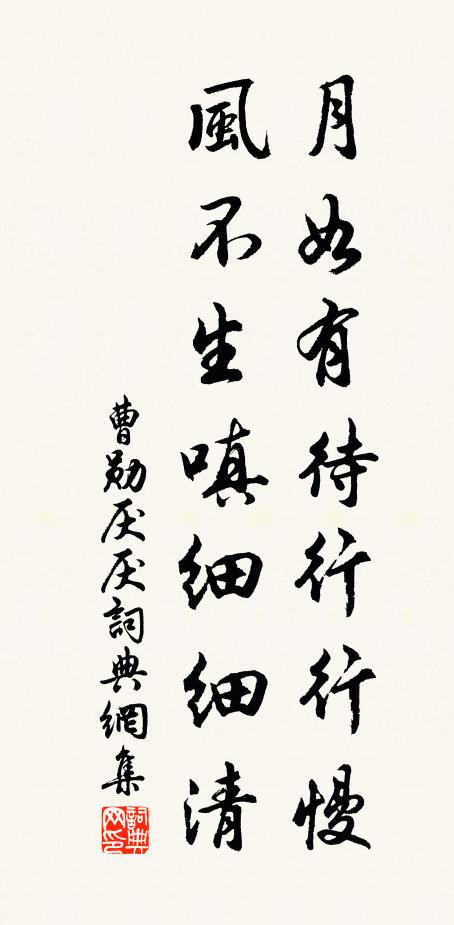 月如有待行行慢
風不生嗔細細清
曹勛厌厌詞典網集
詞典
网印